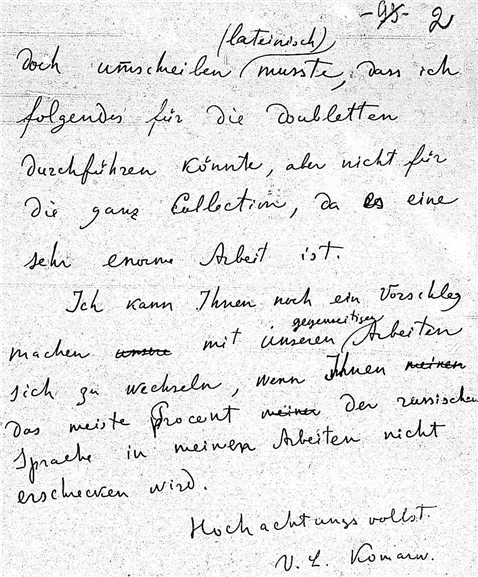 -95- 2
(lateinisch)
doch umschreiben musste, dass ich
folgendes für die doubletten
durchführen könnte, aber nicht für
die ganz Collection, da es eine
sehr enorme Arbeit ist.
Ich kann Ihnen noch ein Vorschleg
gegenseitigen
machen unsere mit unseren Arbeiten
sich zu wechseln, wenn Ihnen meinen
das meiste Procent meiner der russischen
Sprache in meinen Arbeiten nicht
erschrecken wird.
Hochachtungsvollst.
V. L. Komarov.